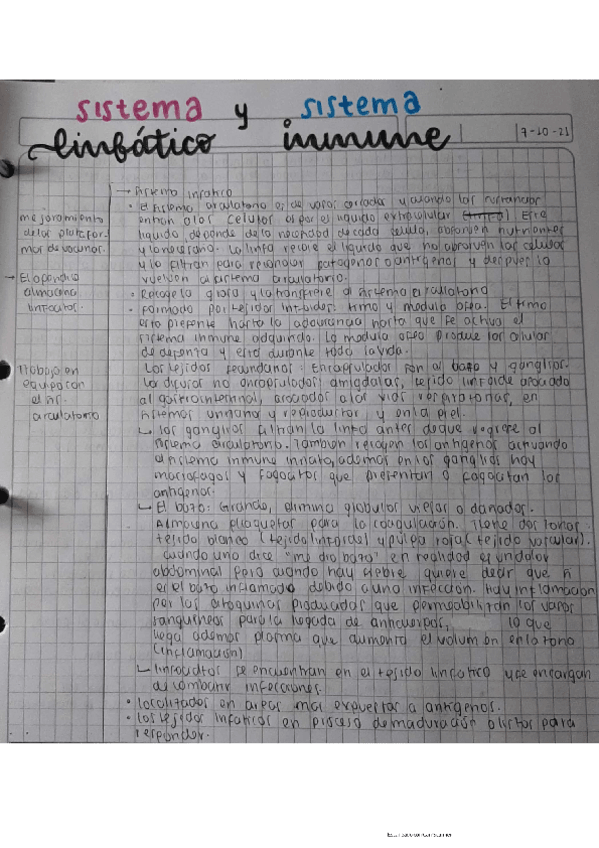 sistema y sistema
linfático inmune 7-10-21
→ sistema linfatico
• el sistema circulatorio es de vasos cerrados y cuando los nutrientes
entran a las celulas es por el liquido extracelular Este
liquido depende de la necesidad de cada celula, absorven nutrientes
y lo necesario. La linfa recibe el liquido que no absorven las celulas
y lo filtran para reconocer patogenos o antigenos y despues lo
vuelven al sistema circulatorio.
• Recoge la grasa y la transfiere al sistema circulatorio
• Formado por tejidos linfoides: timo y medula osea. El timo
esta presente hasta la adolescencia hasta que se activa el
sistema inmune adquirido. La medula osea produce las celulas
de defensa y esta durante toda la vida.
Los tejidos secundarios: Encapsulados son al bazo y ganglios.
Los difusos no encapsulados: amigdalas, tejido linfoide asociado
al gastrointestinal, asociados a las vias respiratorias, en
sistemas urinario y reproductor y en la piel.
↳ los ganglios filtran la linfa antes de que regrese al
sistema circulatorio. Tambien recogen los antigenos activando
el sistema inmune innato, ademas en los ganglios hay
macrofagos y fagocitos que presentan o fagocitan los
antigenos.
↳ El bazo: Grande, elimina globulos viejos o dañados.
Almacena plaquetas para la coagulación. Tiene dos zonas:
tejido blanco (tejido linfoide) y pulpa roja (tejido vascular).
Cuando uno dice "me dio bazo" en realidad es un dolor
abdominal pero cuando hay fiebre quiere decir que si
es el bazo inflamado debido a una infección. Hay inflamacion
por las citoquinas producidas que permeabilizan los vasos
sanguineos para la llegada de anticuerpos, lo que
llega ademas plasma que aumenta el volumen en la zona
(inflamación)
↳ linfocitos se encuentran en el tejido linfatico y se encargan
de combatir infecciones.
• localizados en areas mas expuestas a antigenos.
• los tejidos linfaticos en proceso de maduración o listos para
responder.
mejoramiento
de las platafor-
mas de vacunas.
→ El apendice
almacena
linfocitos.
Trabaja en
equipo con
el sis.
circulatorio
Escaneado con CamScanner